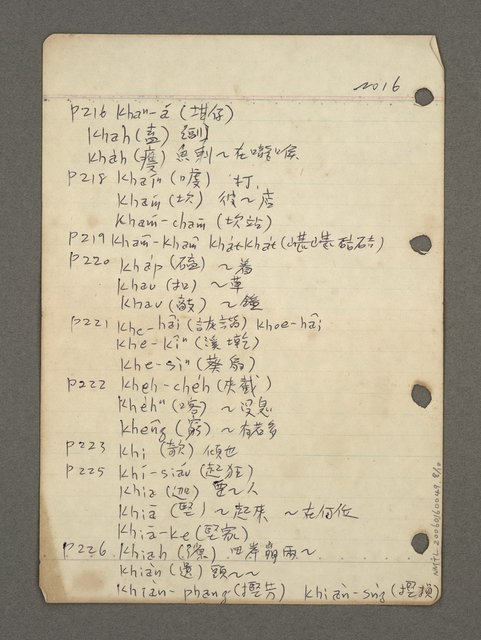 2016
P216 Khaⁿ-á (坩仔)
Khah (蓋)
Khah 魚刺~在嚨喉
P218 Khaiⁿ 打
Kham (坎) 彼~店
Kham-cham (坎站)
P219 Kham-kham khat-khat
P220 Khap (磕) ~着
Khau (扣) ~草
Khau (敲) ~鐘
P221 khe-hâi (詼諧) khoe-hâi
khe-kîⁿ (溪乾)
khe-sìⁿ (葵扇)
P222 Kheh-chéh (夾截)
Khéhⁿ ~沒息
Khêng (窮) ~有若多
P223 Khi (欹) 傾也
P225 Khí-siáu (起狂)
Khia (迦) 人
Khiā (竪) ~起來 ~在何位
Khiā-ke (竪家)
P226 Khiah (隙) 田岸崩兩~
Khiàn (遣) 頭~~
Khian-phang (芳) Khiàn-sńg
NMTL 20060160049 8/10